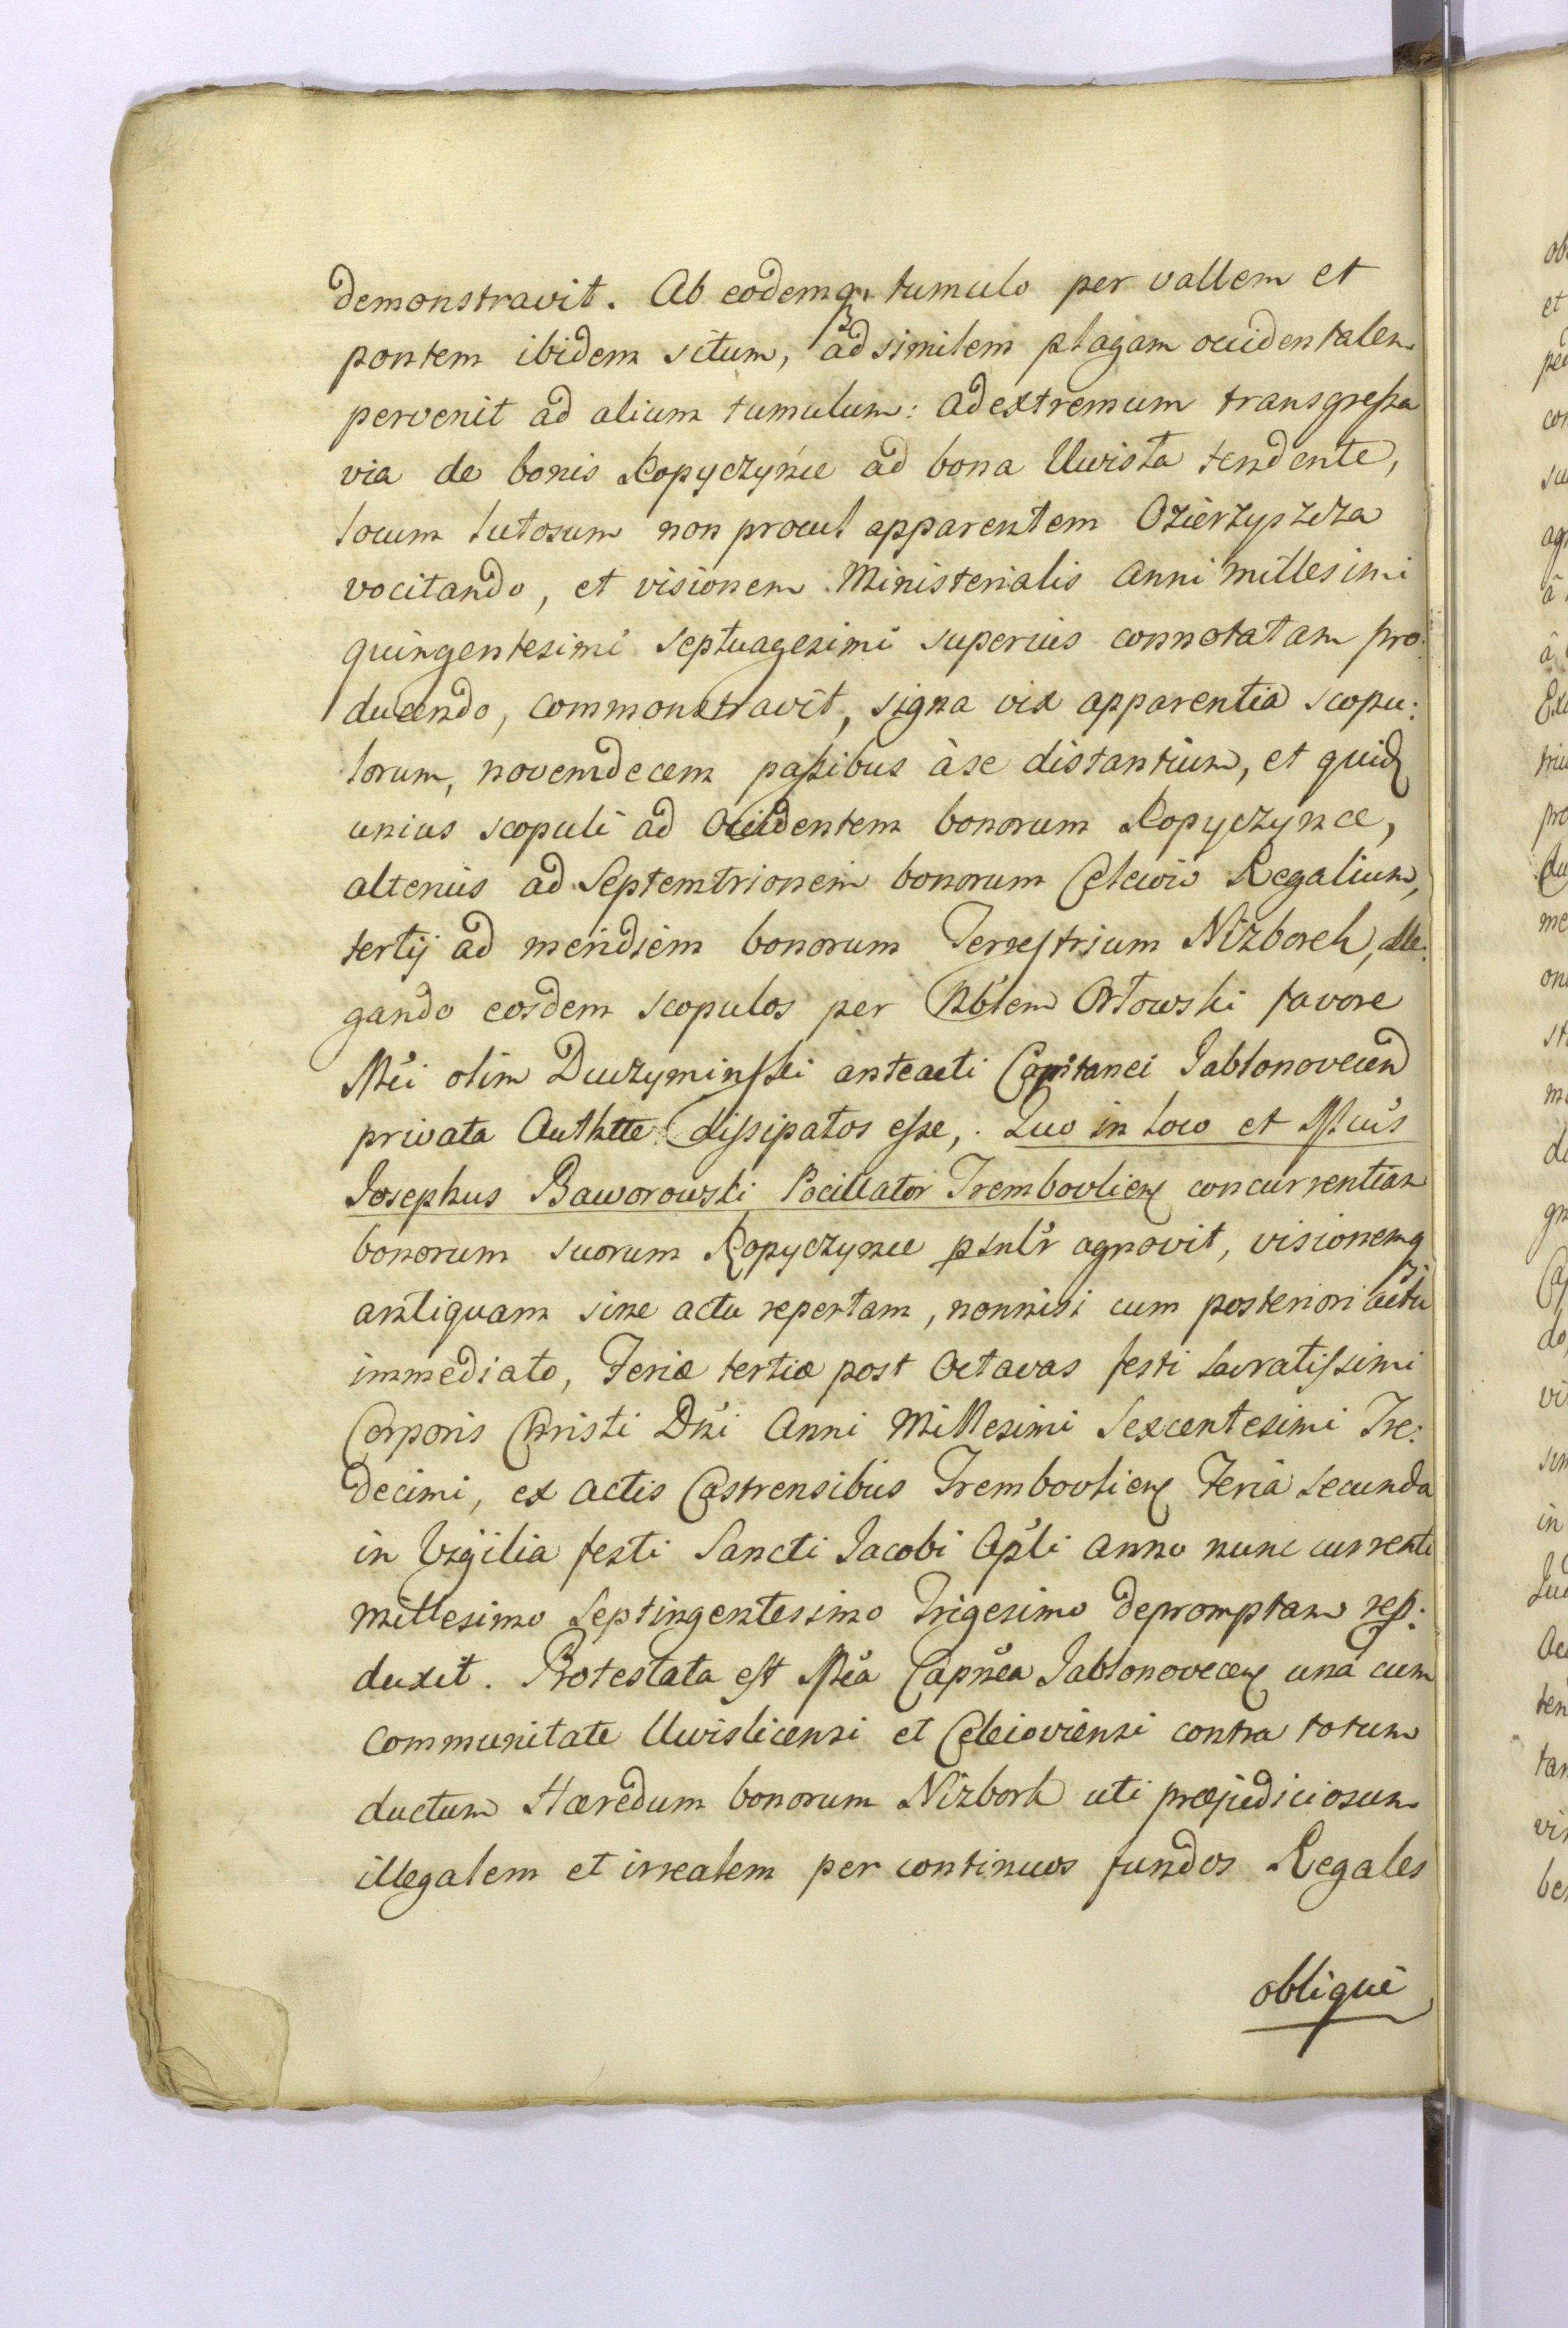 demonstravit. Ab eodemq₃ tumulo per vallem et
pontem ibidem situm, ad similem plagam occidentalem
pervenit ad alium tumulum: ad extremum transgressa
via de bonis Kopyczyńce ad bona Uwisła tendente,
locum lutosum non procul apparentem Ozierzyszcza
vocitando, et visionem Ministerialis Anni millesimi
quingentesimi septuagesimi superius connotatam pro:
ducendo, commonstravit, signa vix apparentia scopu:
lorum, novemdecem passibus à se distantium, et quidꝫ
unius scopuli ad Occidentem bonorum Kopyczynce,
alterius ad Septemtrionem bonorum Celeiow Regalium,
tertij ad meridiem bonorum Terrestrium Niżboreh, alle:
gando eosdem scopulos per Nblem Orłowski favore
Mci olim Duczyminski anteacti Capitanei Jablonovecen
privata Authtte dissipatos esse, . Quo in loco et Mcus
Josephus Baworowski Pocillator Trembovlienꝫ concurrentiam
bonorum suorum Kopyczynce psnlr agnovit, visionemq₃
antiquam sine actu repertam, nonnisi cum posteriori actu
immediato, Feriæ tertiæ post Octavas festi sacratissimi
Corporis Christi Dni Anni Millesimi Sexcentesimi Tre:
decimi, ex actis Castrensibus Trembovlienꝫ Feria secunda
in Vigilia festi Sancti Jacobi Apli Anno nunc currenti
millesimo Septingentesimo Trigesimo depromptam rep:
duxit. Protestata est Mca Capnea Jablonovecenꝫ unà cum
communitate Uwislicensi et Celeioviensi contra totum
ductum Hæredum bonorum Niżborh uti præjudiciosum
illegalem et irrealem per continuos fundos Regales
obliquè